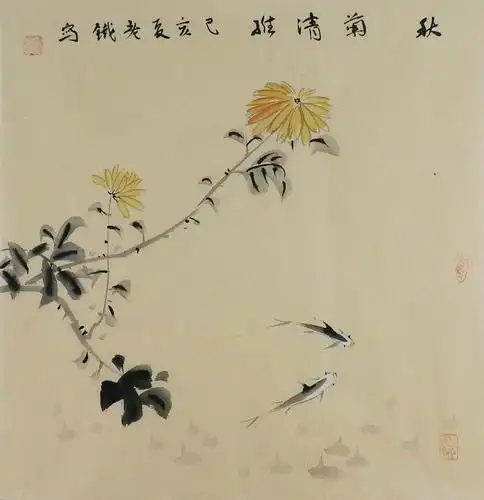 秋菊清雅 己亥夏老铁写